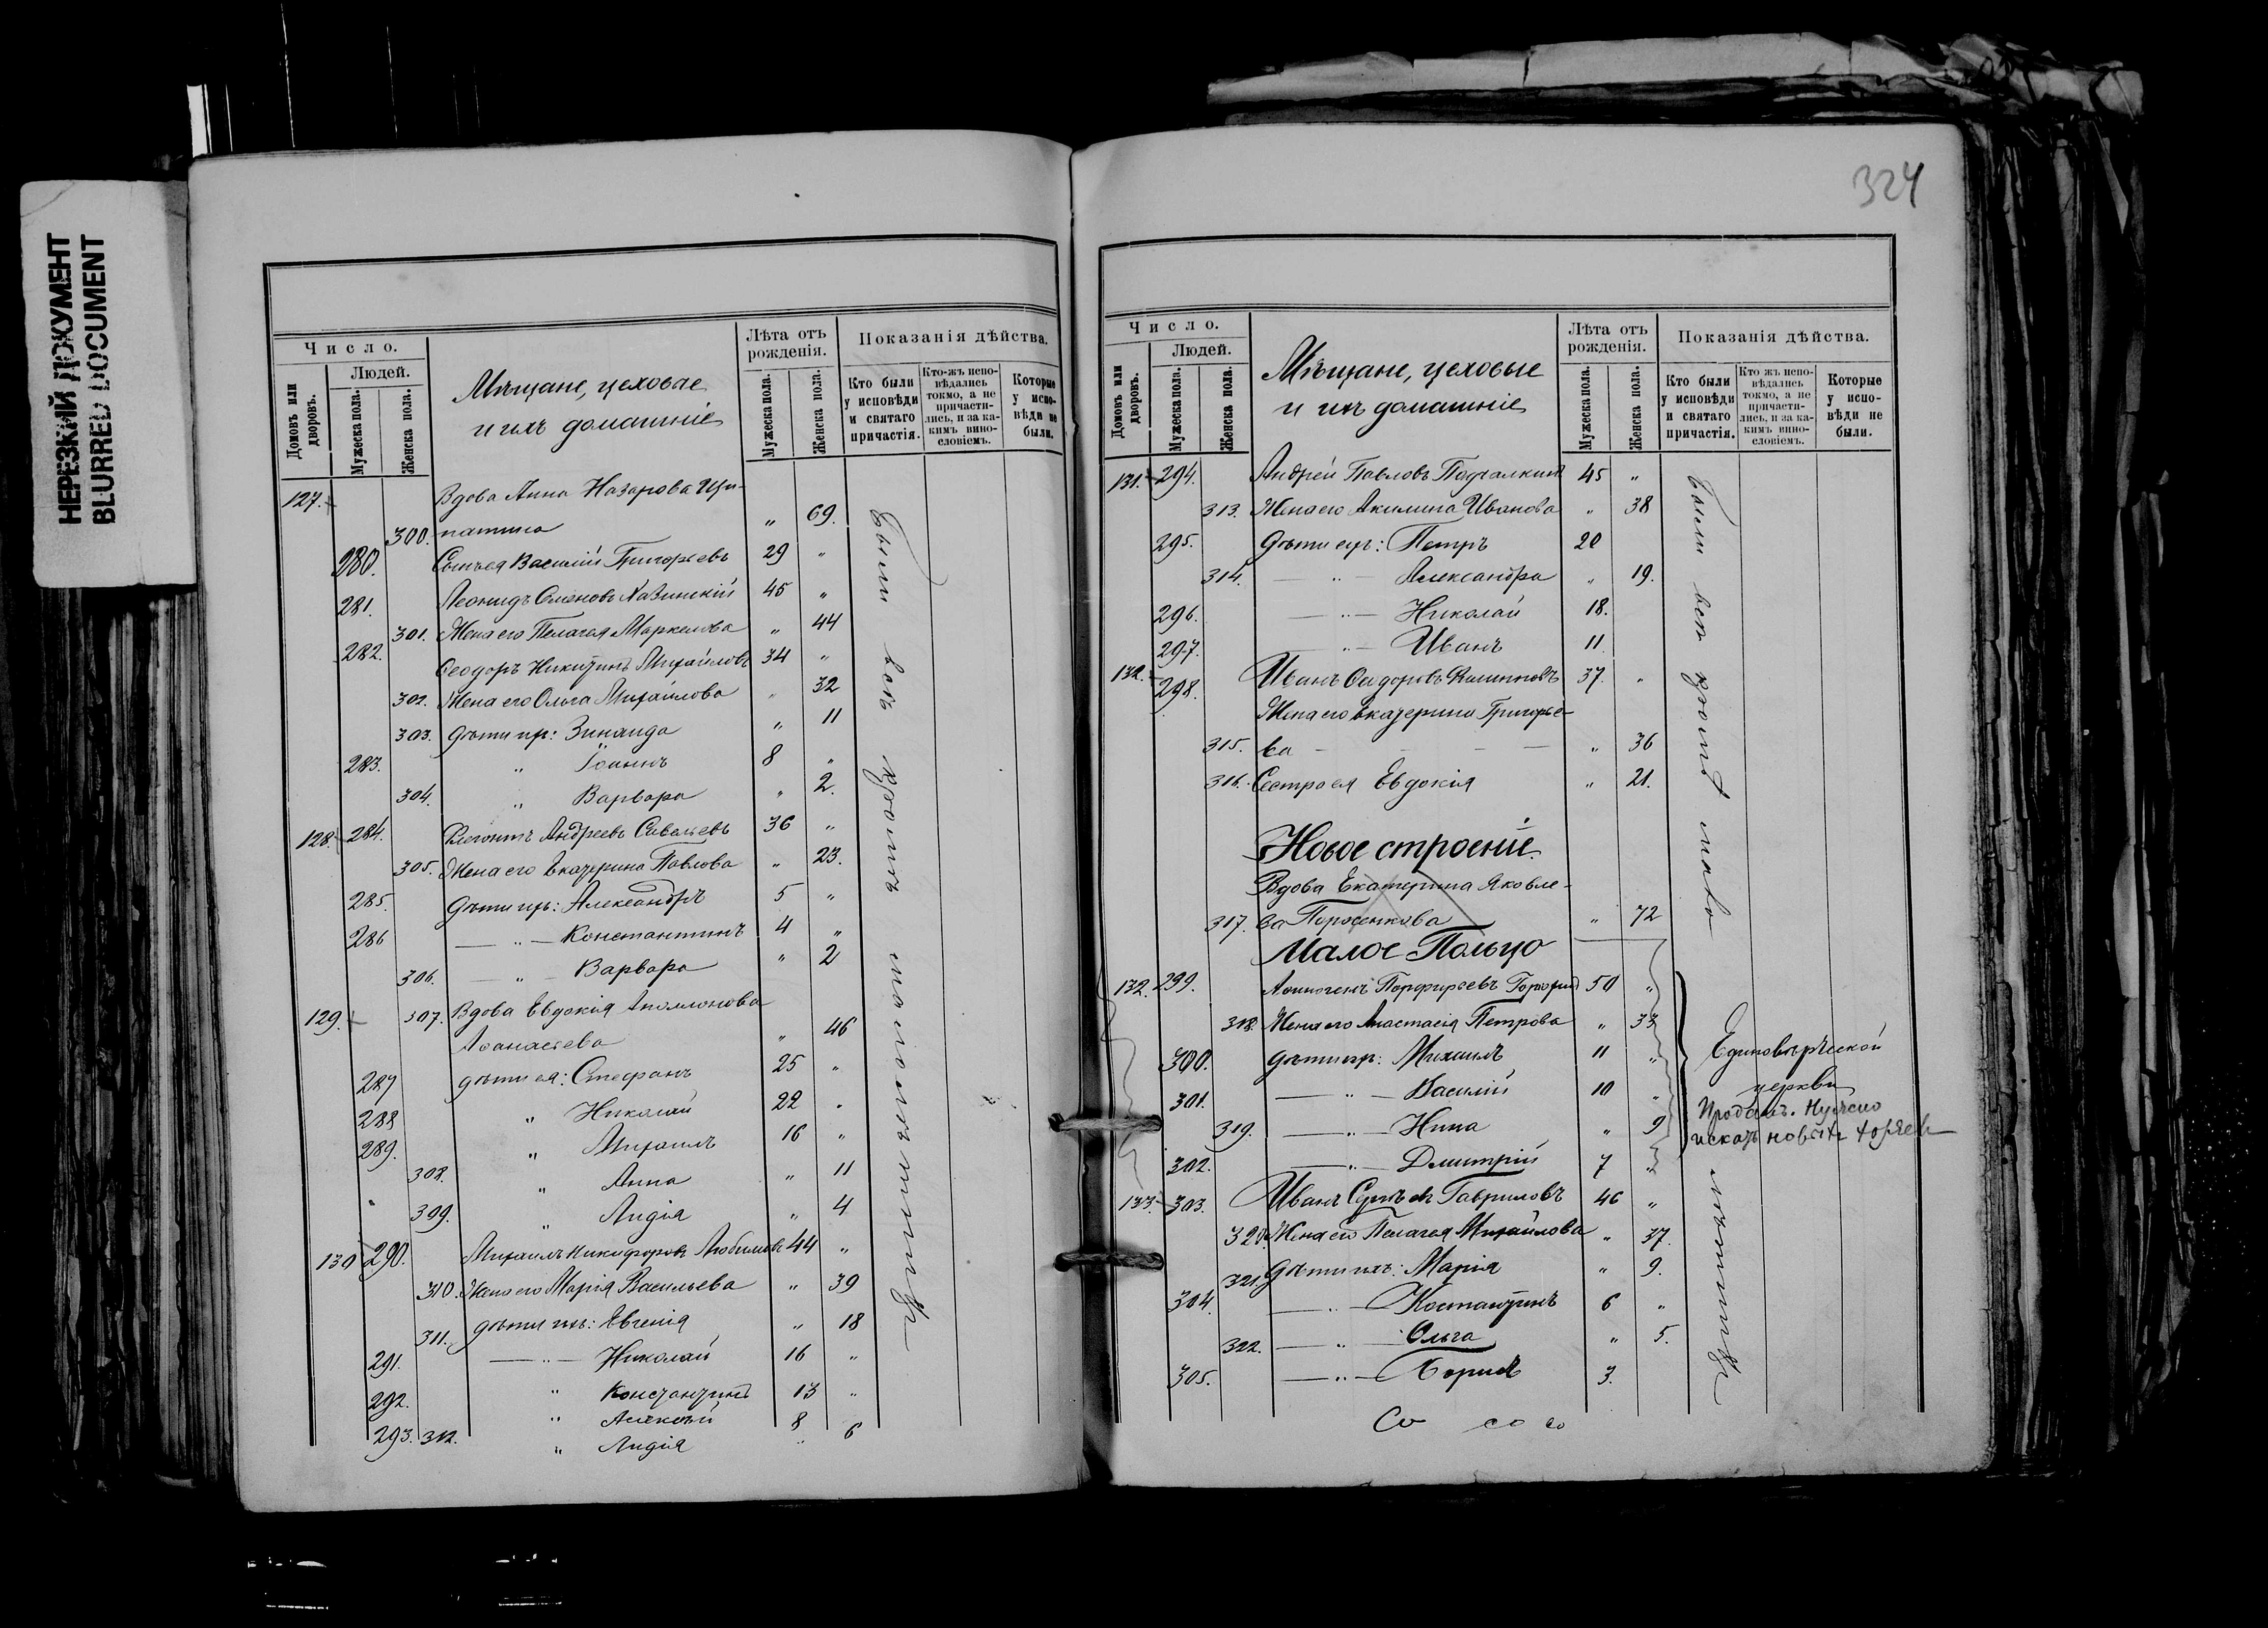 НЕРЕЗКИЙ ДОКУМЕНТ
BLURRED DOCUMENT
Число.
Людей.
Домовъ или дворовъ.
Мужеска пола.
Женска пола.
Мѣщане, цеховые
и ихъ домашніе
Лѣта отъ рожденія.
Мужеска пола.
Женска пола.
Показанія дѣйства.
Кто были у исповѣди и святаго причастія.
Кто-жъ исповѣдались токмо, а не причастились, и за какимъ винословіемъ.
Которые у исповѣди не были.
127. Вдова Анна Назарова
300. " 69.
280. Сынъ ея Василій Григорьевъ 29 "
281. Леонидъ Семеновъ 45 "
301. Жена его Пелагея Маркелова " 44
282. Ѳеодоръ Никитинъ Михайловъ 34 "
302. Жена его Ольга Михайлова " 32
303. Дѣти ихъ: Зинаида " 11
283. " Іоаннъ 8 "
304. " Варвара " 2.
128. 284. Андреевъ Савельевъ 36 "
305. Жена его Екатерина Павлова " 23.
285. Дѣти ихъ: Александръ 5 "
286 — " — Константинъ 4 "
306. — " — Варвара " 2
129. 307. Вдова Евдокія Аполлонова
Аѳанасьева " 46
287 дѣти ея: Стефанъ 25 "
288 " Николай 22 "
289. " Михаилъ 16 "
308. " Анна " 11
309. " Лидія " 4
130 290. Михаилъ Никифоровъ Любимовъ 44 "
310. Жена его Марія Васильева " 39
311. дѣти ихъ: Евгенія " 18
291. — " — Николай 16 "
292. " Константинъ 13 "
293. " Алексѣй 8
312. " Лидія " 6
Были всѣ кромѣ
324
Число.
Людей.
Домовъ или дворовъ.
Мужеска пола.
Женска пола.
Мѣщане, цеховые
и ихъ домашніе
Лѣта отъ рожденія.
Мужеска пола.
Женска пола.
Показанія дѣйства.
Кто были у исповѣди и святаго причастія.
Кто жъ исповѣдались токмо, а не причастились, и за какимъ винословіемъ.
Которые у исповѣди не были.
131. 294. Андрей Павловъ 45 "
313. Жена его Акилина Иванова " 38
295. Дѣти ихъ: Петръ 20
314. — " — Александра " 19.
296. — " — Николай 18.
297. — " — Иванъ 11.
132. 298. Иванъ Ѳедоровъ 37. "
Жена его Екатерина Григорье-
315. ва — — — — " 36
316. Сестра ея Евдокія " 21.
Новое строеніе.
Вдова Екатерина Яковле-
317. ва Поросенкова " 72
Малое Польцо
132. 299. Порфирьевъ 50 "
318. Жена его Анастасія Петрова " 33
300. дѣти ихъ: Михаилъ 11 "
301. — " — Василій 10 "
319. — " — Нина " 9
302. — " — Димитрій 7 "
Единовѣрческой
церкви
Продалъ. Нужно
искать новыхъ
133. 303. Иванъ Гавриловъ 46 "
320. Жена его Пелагея Михайлова " 37.
321. Дѣти ихъ: Марія " 9.
304. — " — Костантинъ 6 "
322. — " — Ольга " 5.
305. — " — Борисъ 3.
Были всѣ кромѣ